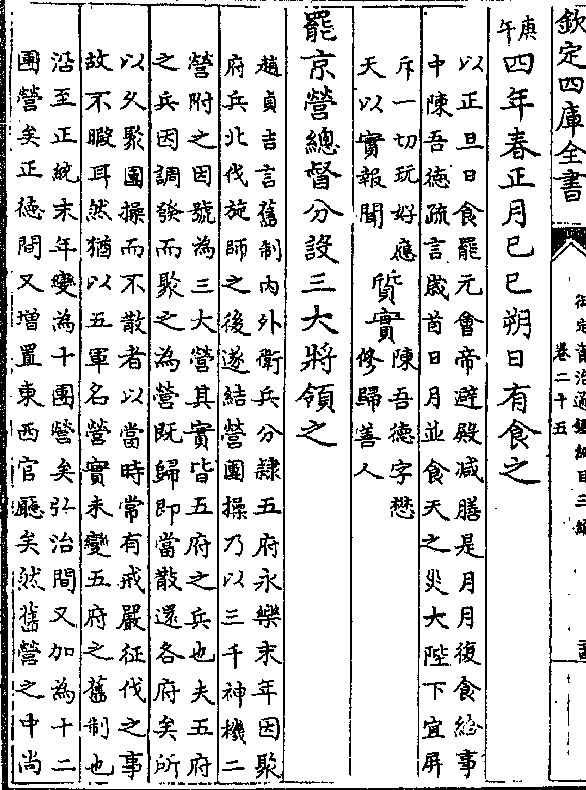 欽定四庫全書
御定資治通鑑綱目三編
卷二十五
庚午
四年春正月己巳朔日有食之
以正旦日食罷元會帝避殿減膳是月月復食給事
中陳吾德疏言歲首日月並食天之災大陛下宜屏
斥一切玩好應
天以實報聞
質實
陳吾德字懋
修歸善人
罷京營總督分設三大將領之
趙貞吉言舊制內外衛兵分隸五府永樂末年因聚
府兵北伐旋師之後遂結營團操乃以三千神機二
營附之因號為三大營其實皆五府之兵也夫五府
之兵因調發而聚之為營既歸即當散還各府矣所
以久聚團操而不散者以當時常有戒嚴征伐之事
故不暇耳然猶以五軍名營實未變五府之舊制也
沿至正統末年變為十團營矣弘治間又加為十二
團營矣正德間又增置東西官廳矣然舊營之中尚